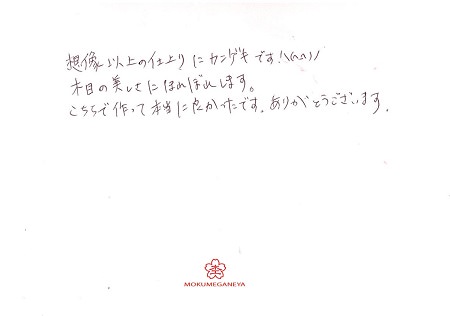 想像以上の仕上りにカンゲキです!\(^^)/
木目の美しさにほれぼれします。
こちらで作って本当に良かったです。ありがとうございます。
MOKUMEGANEYA